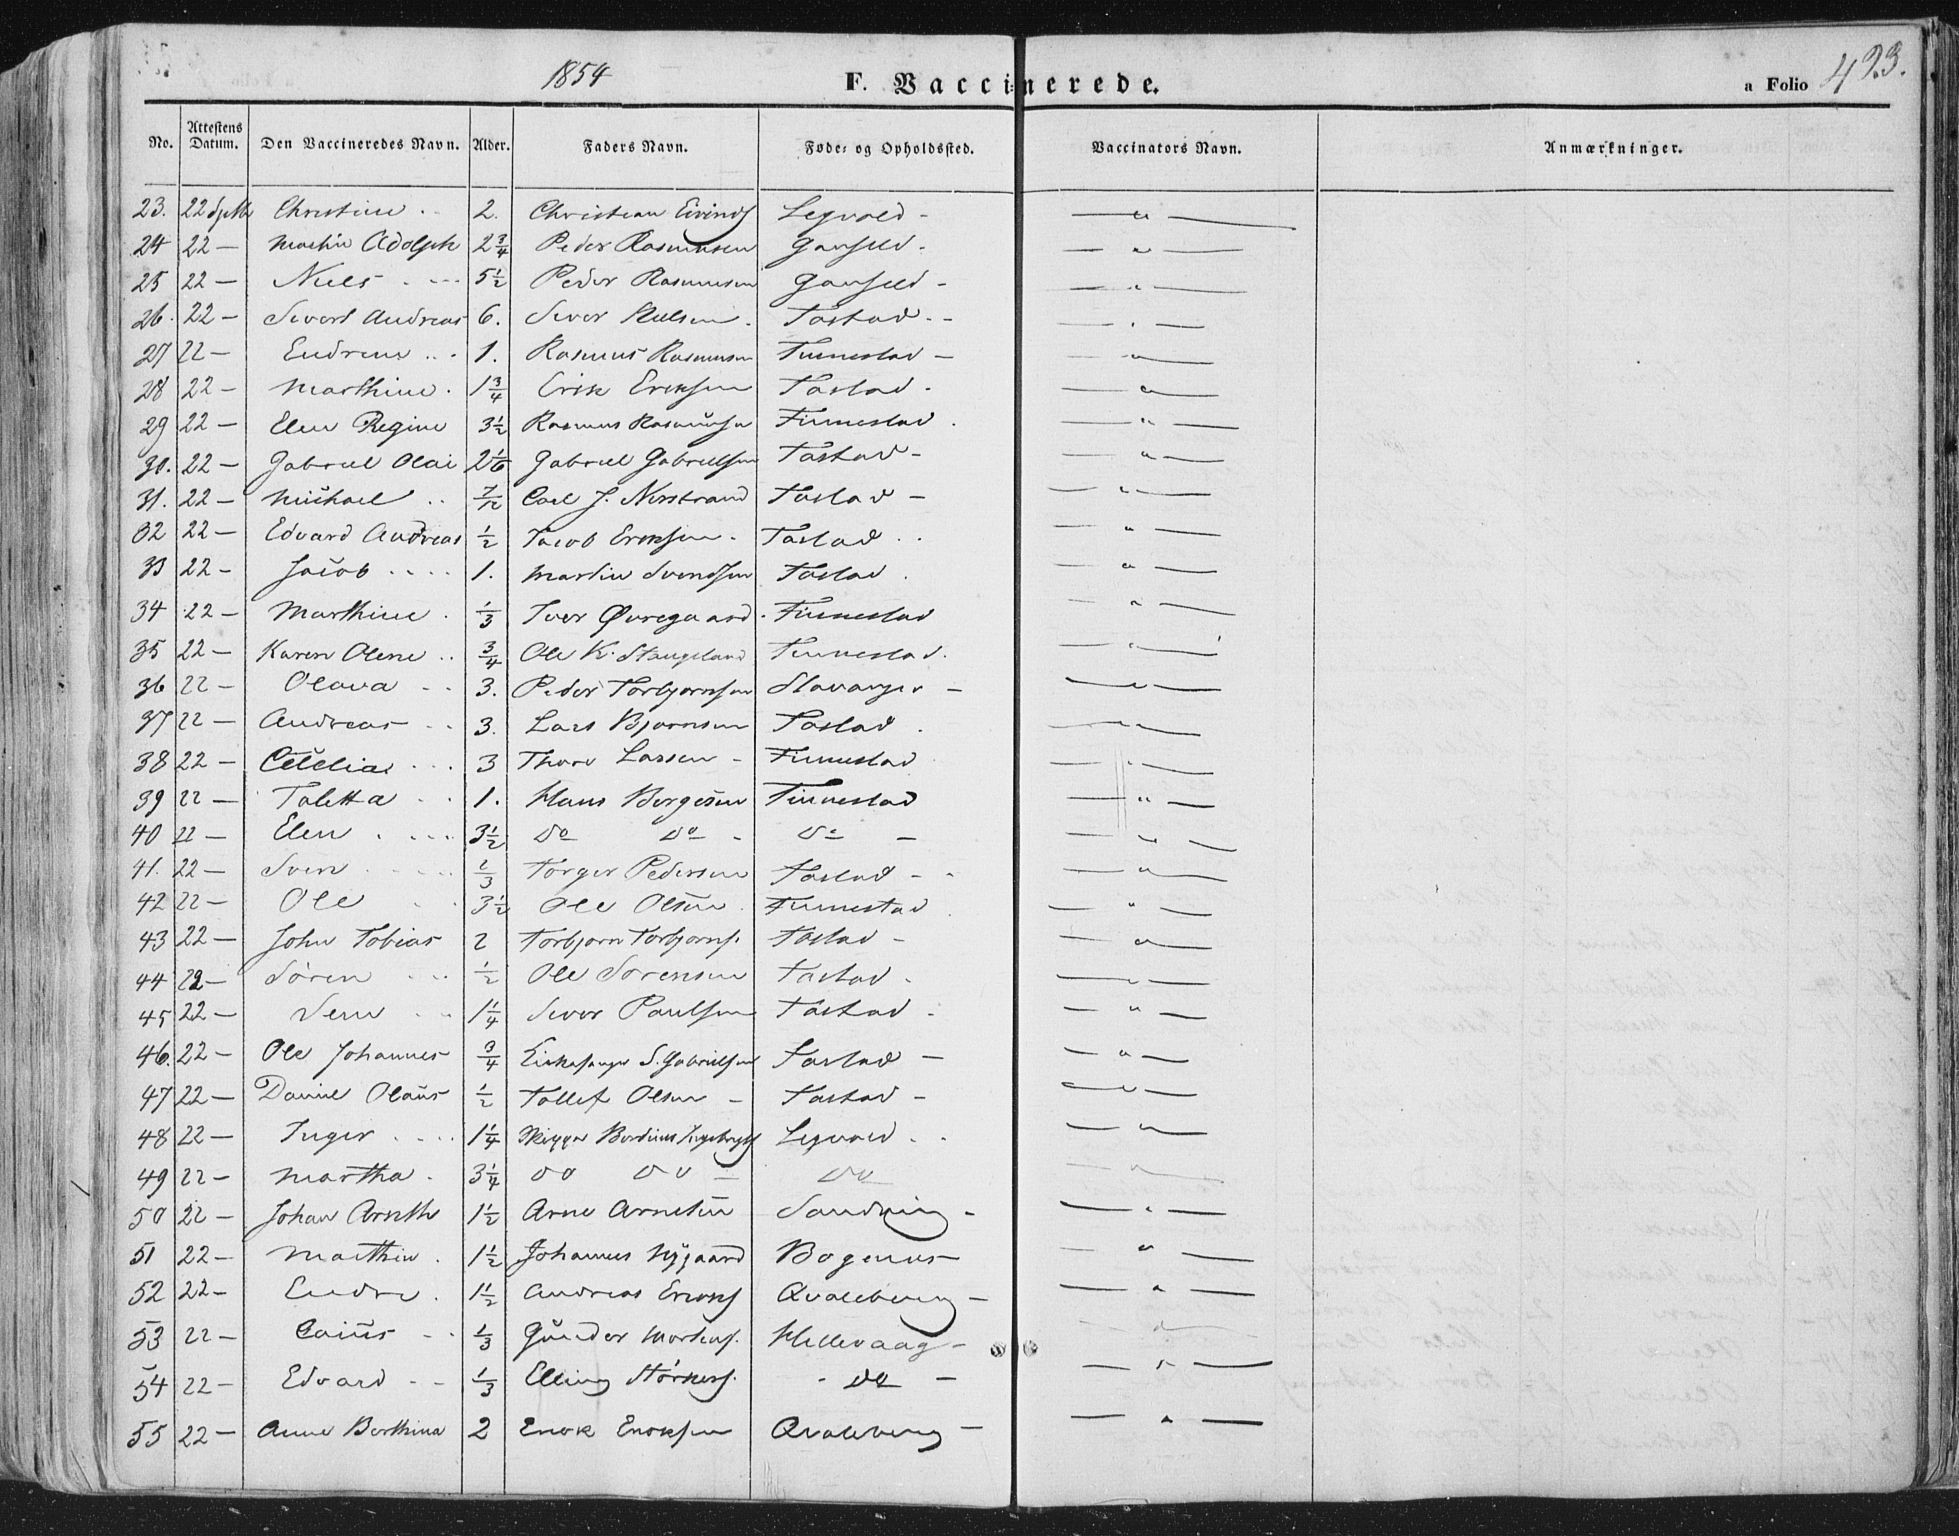 1854
F. Vaccinerede.
a Folio 423.
No. Attestens Datum. Den Vaccineredes Navn. Alder. Faders Navn. Føde- og Opholdssted. Vaccinators Navn. Anmærkninger.
23. 22 Septb Christine 2. Christian Eivinds
24 22 — Martin Adolph 2 3/4 Peder Rasmussen Gausel -
25 22 — Niels 5 1/2 Peder Rasmussen Gausel -
26. 22 — Sivert Andreas 6. Siver Nielsen Tastad
27 22 — Endrine 1. Rasmus Rasmusen Finnestad —
28 22 — Marthine 1 3/4 Erik Eriksen Tastad -
29 22 — Elen Regine 3 1/2 Rasmus Rasmusen Finnestad
30. 22 — Gabriel Olai 2 1/6 Gabriel Gabrielsen Tastad -
31. 22 — Michael 7/12 Carl J. Norstrand Tastad —
32 22 — Edvard Andreas 1/2 Jacob Eriksen - Tastad
33 22 — Jacob 1. Martin Svendsen Tastad
34 22 — Marthine 1/3 Iver Øvregaard Finnestad
35 22 — Karen Olene 3/4 Ole K. Stangeland Finnestad.
36 22 — Olava 3. Peder Torbjornsen Stavanger —
37 22 — Andreas 3. Lars Bjornsen Tastad
38 22 — Cecelia 3 Thore Larsen - Finnestad
39 22 — Taletta 1. Hans Borgesen Finnestad
40 22 — Elen 3 1/2 do do - do —
41. 22 — Sven 1/3 Torger Pedersen Tastad -
42 22 — Ole 3 1/2 Ole Olsen Finnestad
43 22 — John Tobias 2 Torbjorn Torbjorns. Tastad -
44 22 — Sören 1/2 Ole Sorensen Tastad -
45 22 — 1 1/4 Siver Paulsen Tastad -
46. 22 — Ole Johannes 3/4 Kirkesanger S. Gabrielsen Tastad —
47 22 — Daniel Olaus 1/2 Tollef Olsen - Tastad -
48 22 — Inger 1 1/4 Skipper Ingebrigts
49 22 — Martha 3 1/4 do do do
50 22 — Johan Arnth 1 1/2 Arne Arnesen -
51 22 — Marthin 1 1/2 Johannes Nygaard
52 22 — Endre 1 1/2 Andreas Erichs Qvaleberg —
53 22 — Caius 1/3 Gunder Mortens. Hillevaag -
54 22 — Edvard 1/3 Elling do —
55 22 — Anne Berthina 2 Enok Enoksen Qvaleberg —